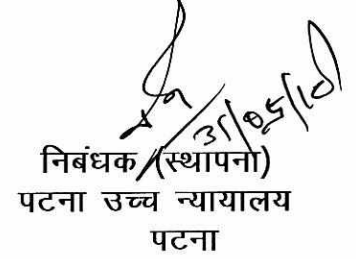 31/05/10
निबंधक (स्थापना)
पटना उच्च न्यायालय
पटना